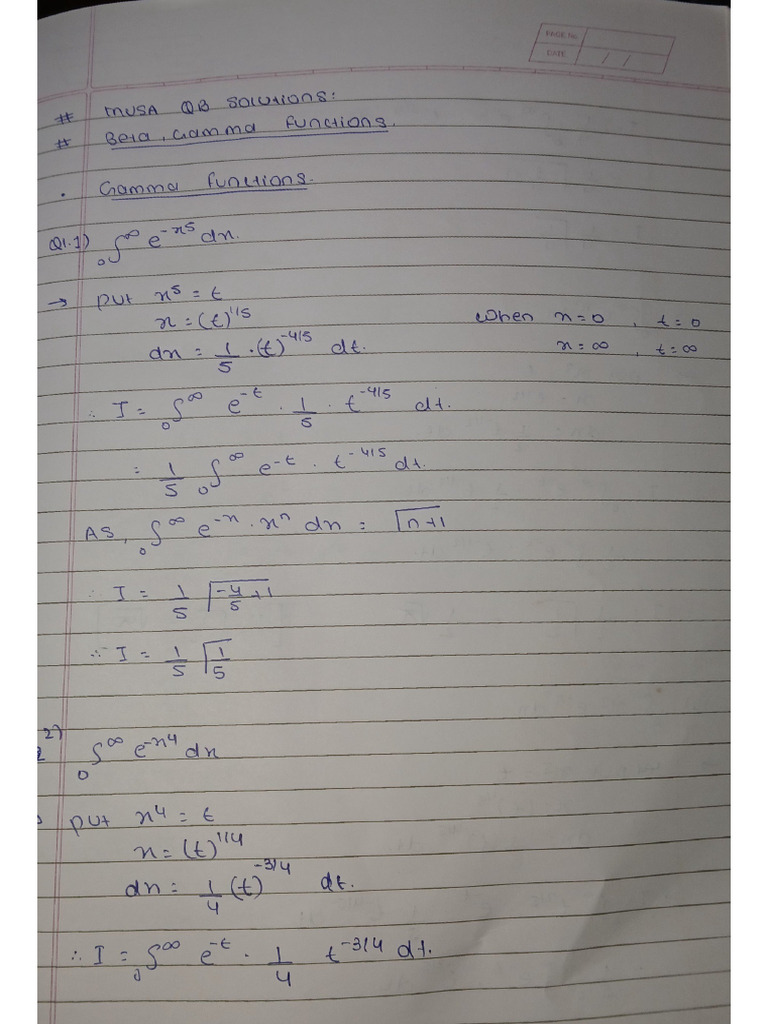 PAGE No.
DATE / /
# MUSA QB SOLUTIONS:
# Beta, Gamma Functions.
. Gamma Functions.
Q1.1) ₀∫^∞ e^-x^5 dx.
→ put x^5 = t
x = (t)^1/5 When x=0 , t=0
dx = 1/5 · (t)^-4/5 dt. x=∞ , t=∞
∴ I = ₀∫^∞ e^-t · 1/5 · t^-4/5 dt.
= 1/5 ₀∫^∞ e^-t · t^-4/5 dt.
AS, ₀∫^∞ e^-x · x^n dx = Γn+1
∴ I = 1/5 Γ-4/5+1
∴ I = 1/5 Γ1/5
2) ₀∫^∞ e^-x^4 dx
put x^4 = t
x = (t)^1/4
dx = 1/4 (t)^-3/4 dt.
∴ I = ₀∫^∞ e^-t · 1/4 t^-3/4 dt.